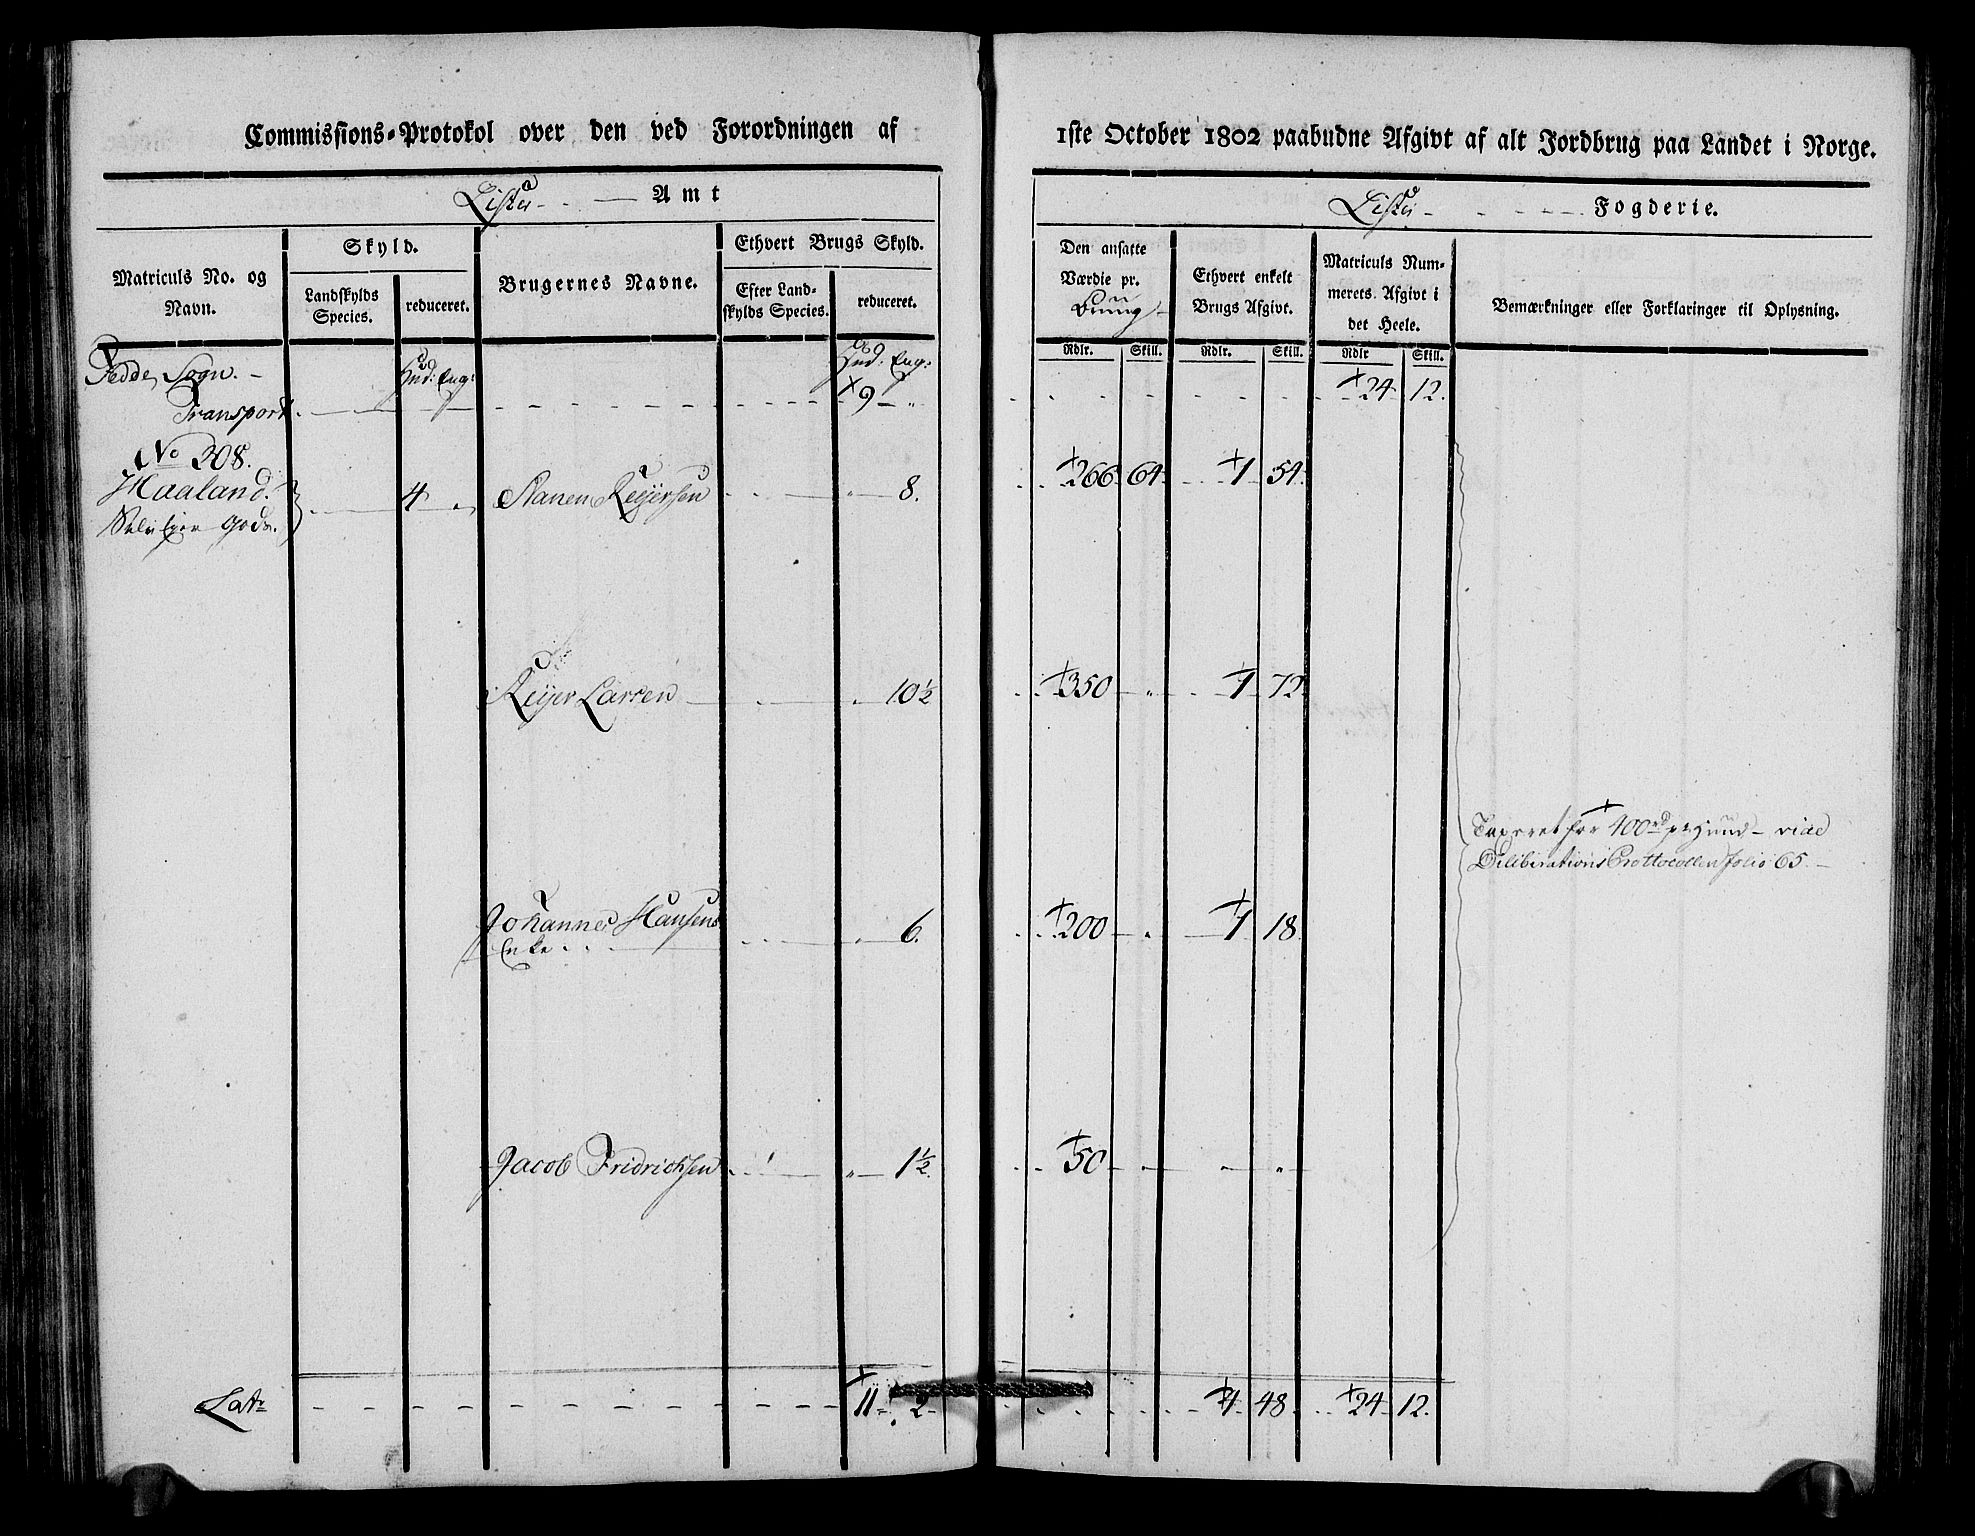 Commissions-Protokol over den ved Forordningen af
1ste October 1802 paabudne Afgivt af alt Jordbrug paa Landet i Norge.
Lister Amt
Lister Fogderie.
Matriculs No. og Navn.
Skyld.
Landskylds Species.
reduceret.
Brugernes Navne.
Ethvert Brugs Skyld.
Efter Land-
skylds Species.
reduceret.
Den ansatte
Værdie pr.
Bruug
Ethvert enkelt
Brugs Afgivt.
Matriculs Num-
merets Afgivt i
det Heele.
Bemærkninger eller Forklaringer til Oplysning.
Rdlr. Skill. Rdlr. Skill. Rdlr Skill.
Fedde Sogn. Hud: Eng: Hud: Eng:
Transport 9 " 24 12.
No 308.
Haaland. 4 " Stanen Reijersen " 8. 266 64 1 54
Selv Ejer Gods.
Reijer Larsen " 10 1/2 350 " 1 72
Taxeret for 400 rd pr Hund vide
Deliberations Prottocollen folio 65
Johannes Hansens " 6. 200 " 1 18
Enke
Jacob Fridrichsen " 1 1/2. 50 " " "
Lats 11 2 4 48 24 12.